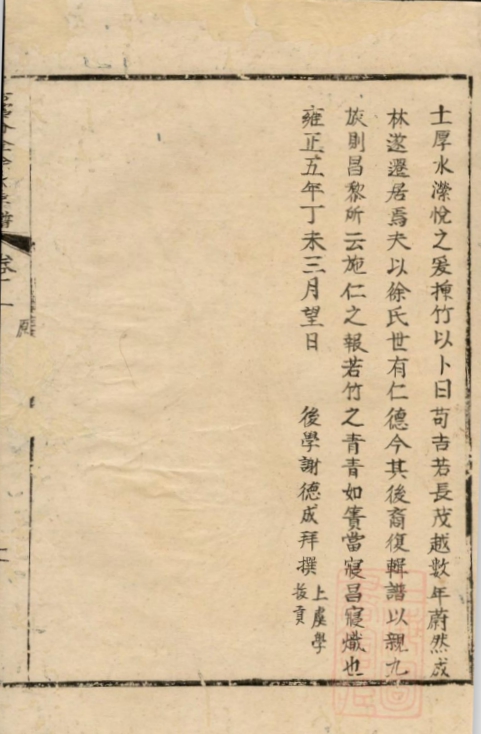 土厚水潔悅之爰揀竹以卜曰茍吉若長茂越數年蔚然成
林遂遷居焉夫以徐氏世有仁德今其後裔復輯譜以親九
族則昌黎所云施仁之報若竹之青青如簀當寖昌寖熾也
雍正五年丁未三月望日
後學謝德成拜撰
上虞學
拔貢